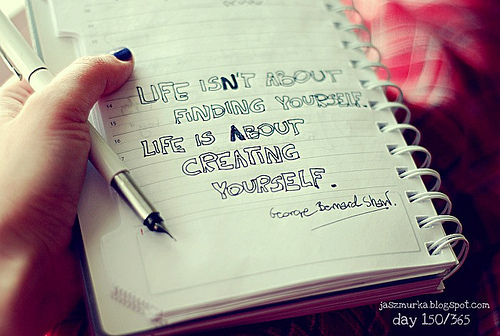 LIFE ISN'T ABOUT
FINDING YOURSELF.
LIFE IS ABOUT
CREATING
YOURSELF.
George Bernard Shaw.
jaszmurka.blogspot.com
day 150/365